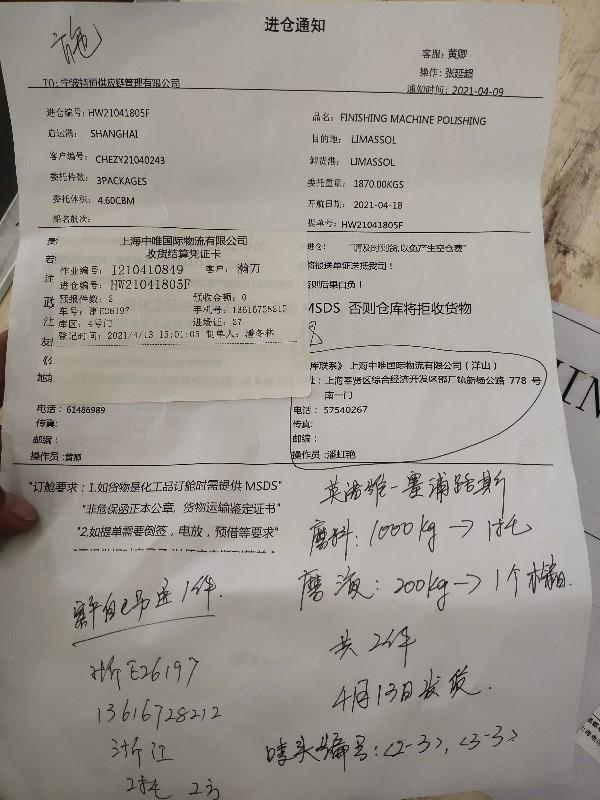 进仓通知
客服：黄卿
操作：张延超
TO:宁波铸恒供应链管理有限公司
通知时间：2021-04-09
进仓编号：HW21041805F
品名：FINISHING MACHINE POLISHING
启运港： SHANGHAI
目的地： LIMASSOL
客户编号： CHEZY21040243
卸货港： LIMASSOL
委托件数： 3PACKAGES
委托重量： 1870.00KGS
委托体积： 4.60CBM
开航日期： 2021-04-18
船名航次：
提单号：HW21041805F
上海中唯国际物流有限公司
收货结算凭证卡
作业编号：I210410849 客户： 瀚万
进仓编号：HW21041805F
预报件数：2 预收金额：0
车号：浙E26197 手机号：13616738215
库区：4号门 进场证：37
登记时间：2021/4/13 15:01:05 制单人：潘冬林
进仓： "请及时到货，以免产生空仓费"
将报送单证送抵我司！
则后果自负！
MSDS 否则仓库将拒收货物
库联系》上海中唯国际物流有限公司（洋山）
址：上海奉贤区综合经济开发区邵厂镇新杨公路 778 号
南一门
电话： 61486989
电话： 57540267
传真：
传真:
邮编：
邮编：
操作员：黄卿
操作员：潘虹艳
"订舱要求：1.如货物是化工品订舱时需提供 MSDS"
"非危保函正本公章，货物运输鉴定证书"
"2.如提单需要倒签，电放，预借等要求"
英诺维－塞浦路斯
磨料：1000kg → 1托
磨液：200kg → 1个木箱
共2件
4月13日发货.
唛头编号：<2-3>，<3-3>
客户自己另送1件.
浙E26197
13616728212
浙江
2托 2方